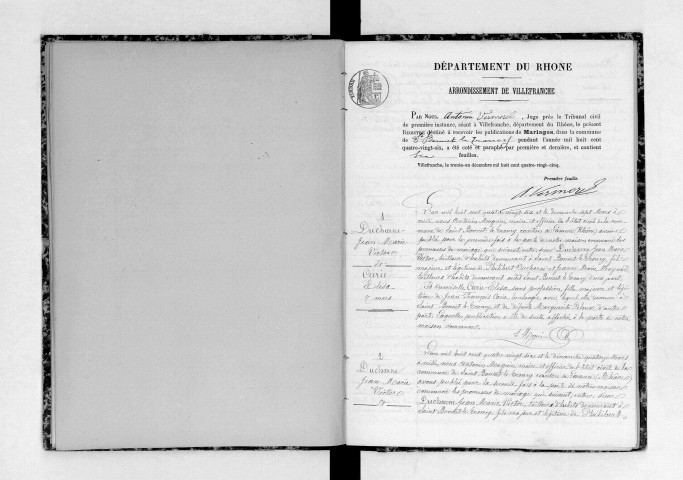 DÉPARTEMENT DU RHONE
ARRONDISSEMENT DE VILLEFRANCHE
PAR NOUS, Antonin Vermorel, Juge près le Tribunal civil
de première instance, séant à Villefranche, département du Rhône, le présent
REGISTRE destiné à recevoir les publications de Mariages, dans la commune
de St Bonnet le Troncy pendant l'année mil huit cent
quatre-vingt-six, a été coté et paraphé par première et dernière, et contient
six feuilles.
Villefranche, le trente-un décembre mil huit cent quatre-vingt-cinq.
Première feuille
A. Vermorel
1
Ducharne
Jean Marie
Victor
et
Carie
Elisa
7 mars
L'an mil huit cent quatre vingt six et le dimanche sept Mars à
midi, nous maire et officier de l'état civil de la com-
mune de Saint Bonnet le Troncy canton de Lamure (Rhône), avons
publié pour la première fois à la porte de notre maison commune les
promesses de mariage qui suivent entre sieur Ducharne Jean Marie
Victor, tailleur d'habits demeurant à Saint Bonnet le Troncy, fils
majeur et légitime de Philibert Ducharne et Jeanne Marie
tailleurs d'habits demeurant audit Saint Bonnet le Troncy d'une part.
Et demoiselle Carie Elisa sans profession, fille majeure et légi-
time de Jean François Carie, avec lequel elle demeure à
Saint Bonnet le Troncy et de défunte Marguerite d'autre
part. Laquelle publication a été de suite affichée à la porte de notre
maison commune.
2
Ducharne
Jean Marie
Victor
et
L'an mil huit cent quatre-vingt six et le dimanche quatorze Mars
à midi, nous maire et officier de l'état civil de la
commune de Saint Bonnet le Troncy canton de Lamure (Rhône)
avons publié pour la seconde fois à la porte de notre maison
commune les promesses de mariage qui suivent, entre sieur
Ducharne Jean Marie Victor, tailleur d'habits demeurant à
Saint Bonnet le Troncy, fils majeur et légitime de Philibert